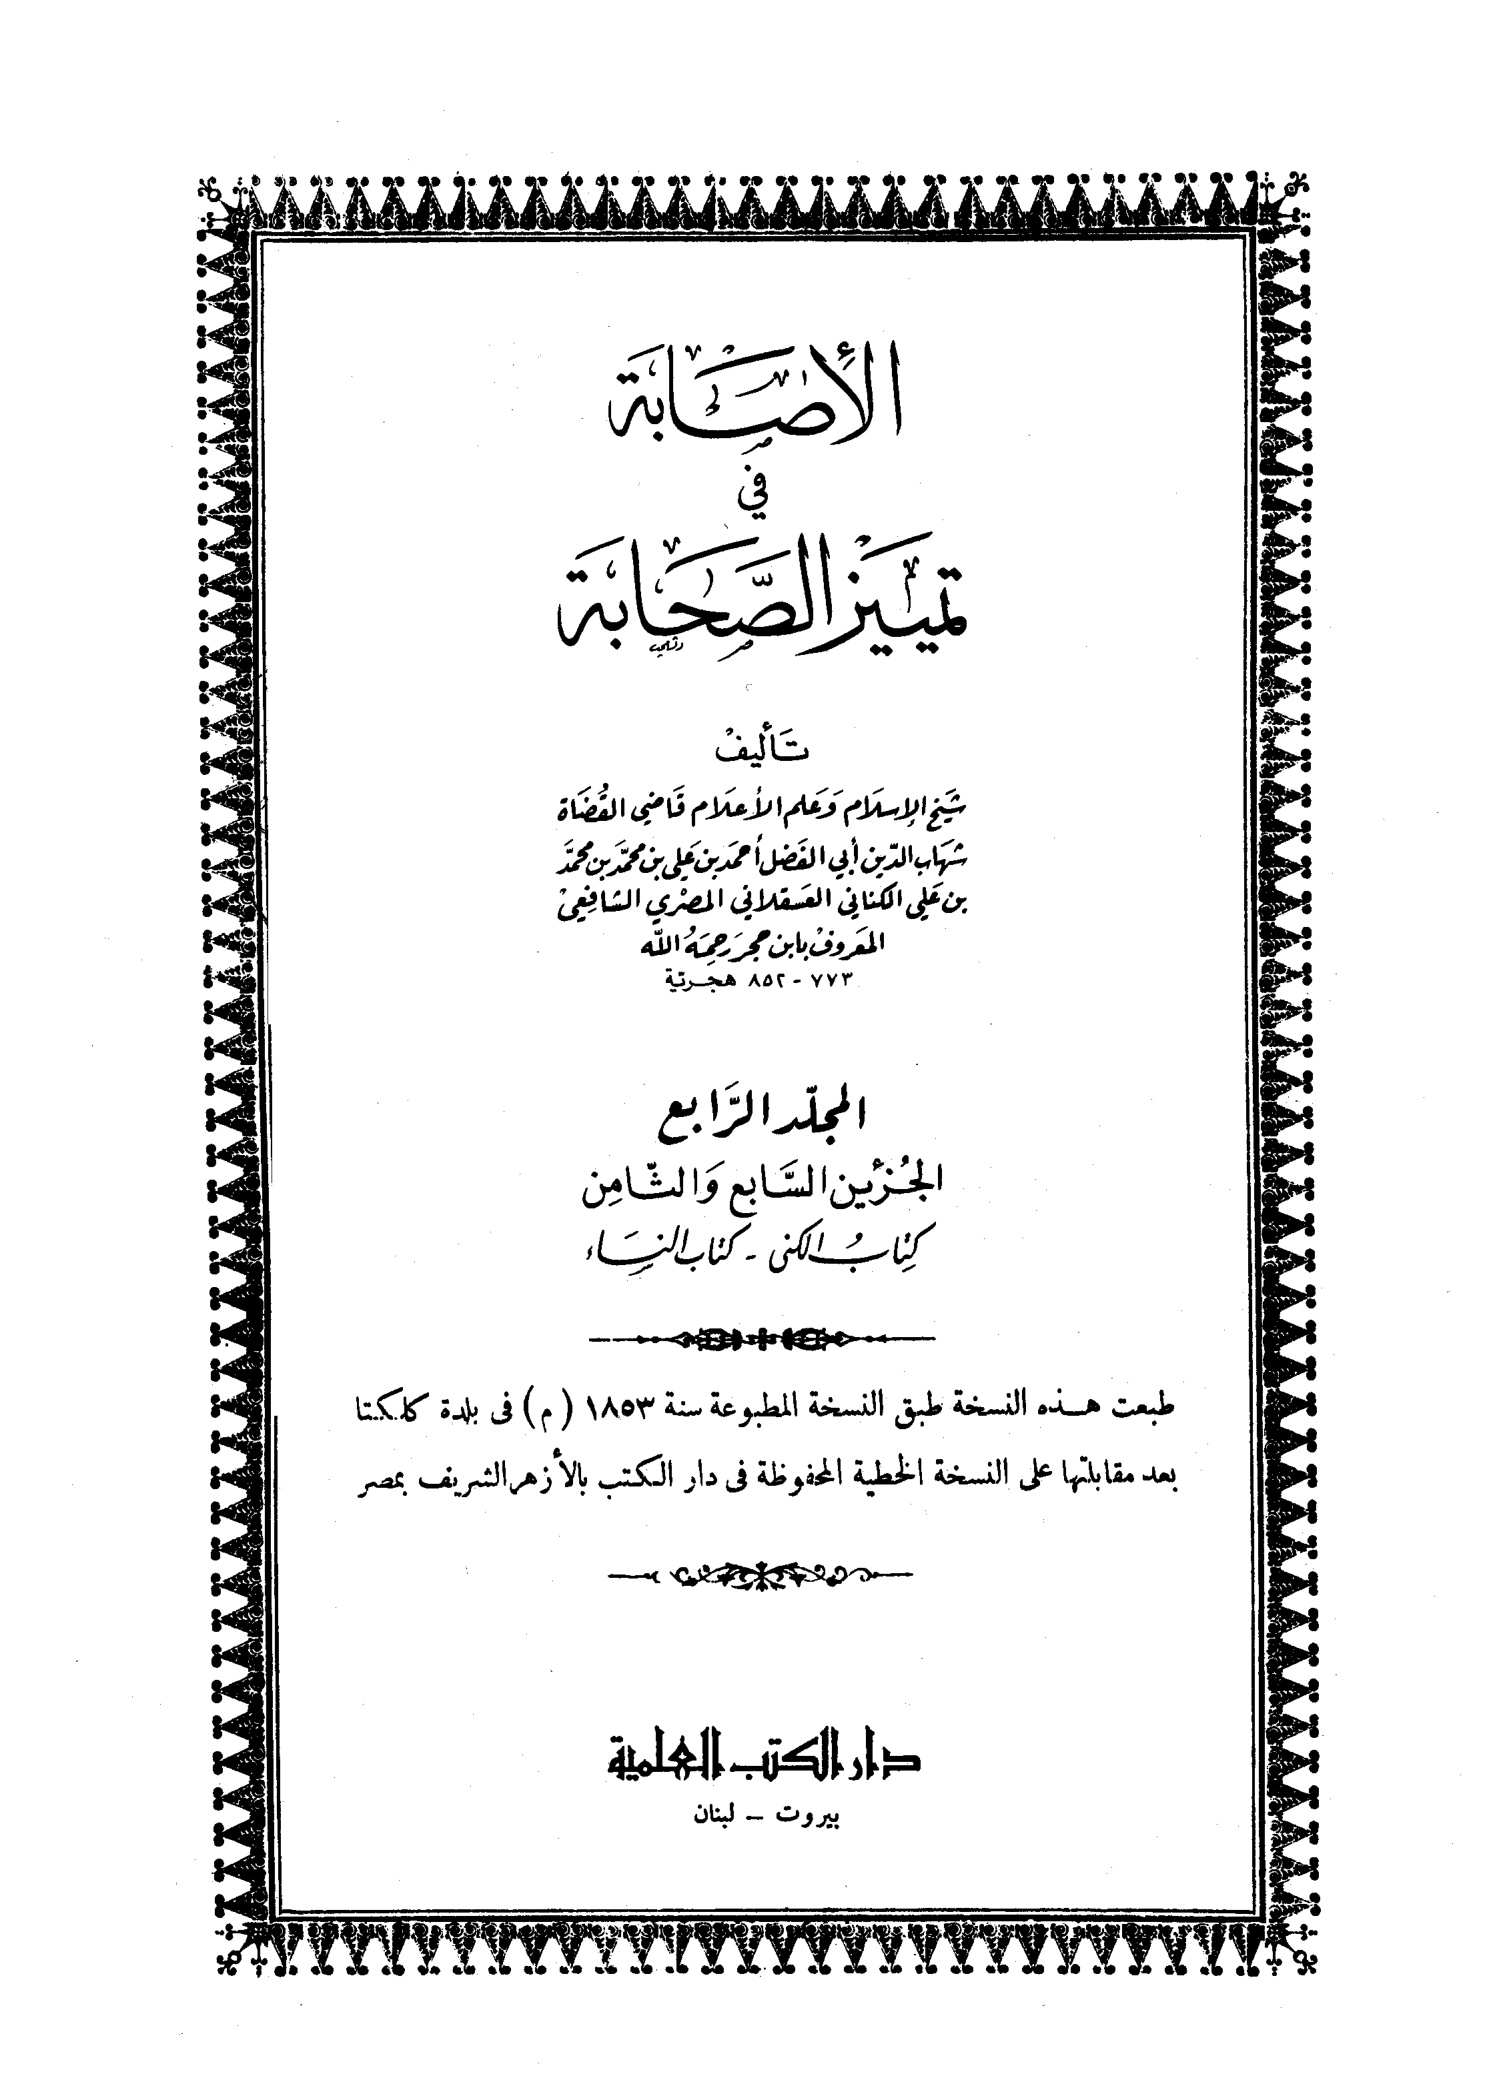 الإصَابَة
في
تمييز الصَّحَابَة
تَأليف
شَيَخ الإسلَام وَعَلم الأعلام قَاضي القُضَاة
شهَاب الدّين أبي الفَضل أحمَد بن عَلي بن محمَّد بن محمَّد
بن عَلي الكناني العَسقلاني المصْري الشافِعي
المعَروف بابن حجر رَحِمَهُ الله
٧٧٣ - ٨٥٢ هجريّة
المجلّد الرَّابع
الجُزئين السَّابع وَالثَّامِن
كِتابُ الكنى - كتاب النِسَاء
طبعت هذه النسخة طبق النسخة المطبوعة سنة ١٨٥٣ (م) فى بلدة كلكتا
بعد مقابلتها على النسخة الخطية المحفوظة فى دار الكتب بالأزهر الشريف بمصر
دار الكتب العلمية
بيروت - لبنان